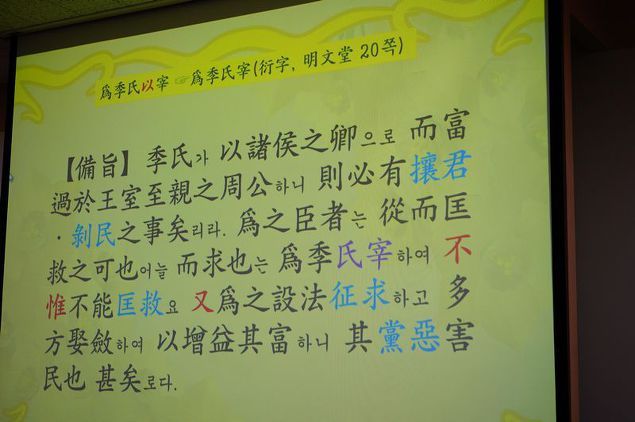 爲季氏以宰 ☞爲季氏宰(衍字, 明文堂 20쪽)
【備旨】 季氏가 以諸侯之卿으로 而富
過於王室至親之周公하니 則必有攘君
·剝民之事矣리라. 爲之臣者는 從而匡
救之可也어늘 而求也는 爲季氏宰하여 不
惟不能匡救요 又爲之設法征求하고 多
方娶斂하여 以增益其富하니 其黨惡害
民也 甚矣로다.